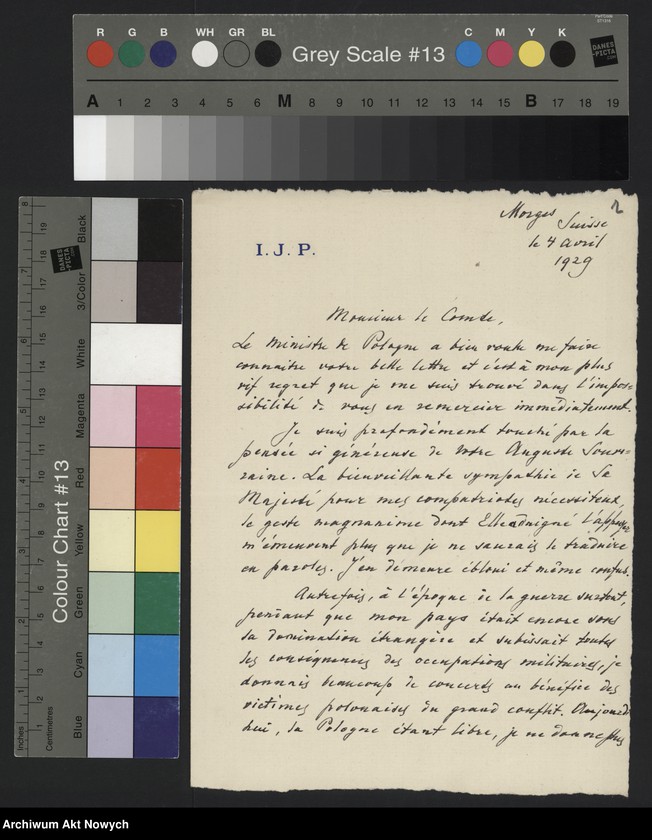 R G B WH GR BL Grey Scale #13 C M Y K
DANES
PICTA
.COM
A 1 2 3 4 5 6 M 8 9 10 11 12 13 14 15 B 17 18 19
Colour Chart #13
Black
3/Color
White
Magenta
Red
Yellow
Green
Cyan
Blue
Inches
Centimetres
2
Morges
Suisse
le 4 Avril
1929
I. J. P.
Monsieur le Comte,
Le Ministre de Pologne a bien voulu me faire
connaitre votre belle lettre et c'est à mon plus
vif regret que je me suis trouvé dans l'impos-
sibilité de vous en remercier immédiatement.
Je suis profondément touché par la
pensée si généreuse de Votre Auguste Souve-
raine. La bienveillante sympathie de Sa
Majesté pour mes compatriotes nécessiteux,
le geste magnanime dont Elle a daigné l'appuyer
m'émeuvent plus que je ne saurais le traduire
en paroles. J'en demeure ébloui et même confus.
Autrefois, à l'époque de la guerre surtout,
pendant que mon pays était encore sous
la domination étrangère et subissait toutes
les conséquences des occupations militaires, je
donnais beaucoup de concerts au bénéfice des
victimes polonaises du grand conflit. Aujourd'
hui, la Pologne étant libre, je ne donne plus
Archiwum Akt Nowych